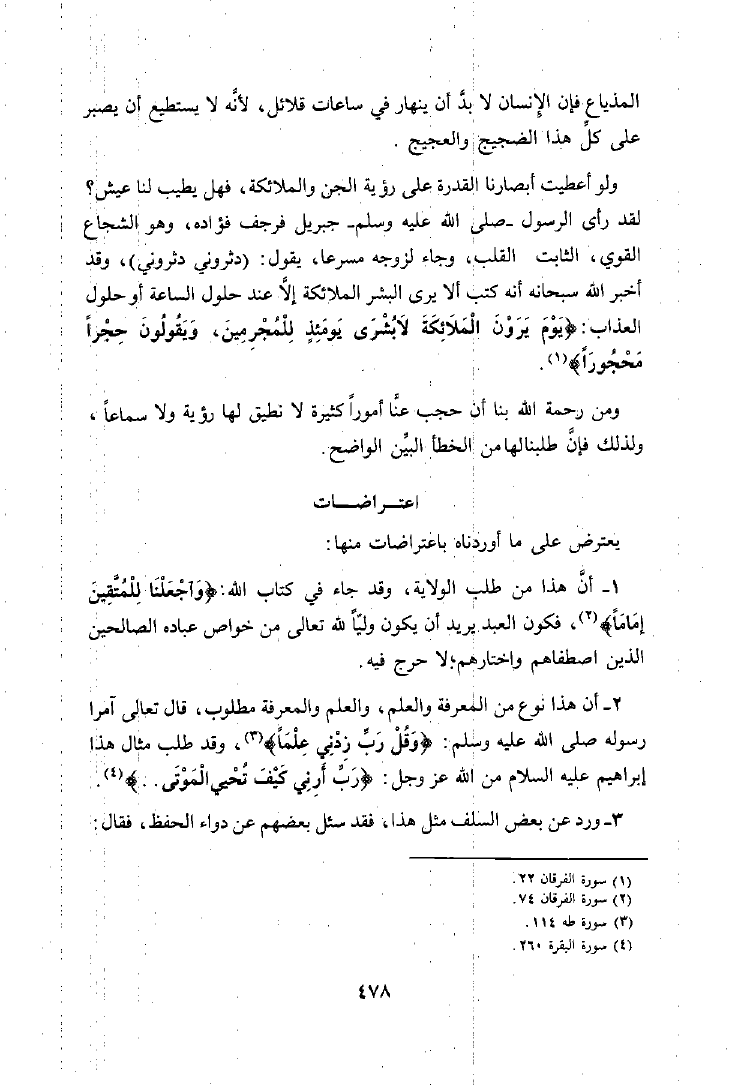 المذياع فإن الإنسان لا بدَّ أن ينهار في ساعات قلائل، لأنَّه لا يستطيع أن يصبر
على كلِّ هذا الضجيج والعجيج .
ولو أعطيت أبصارنا القدرة على رؤية الجن والملائكة، فهل يطيب لنا عيش؟
لقد رأى الرسول ـ صلى الله عليه وسلم ـ جبريل فرجف فؤاده، وهو الشجاع
القوي، الثابت القلب، وجاء لزوجه مسرعا، يقول: (دثروني دثروني)، وقد
أخبر الله سبحانه أنه كتب ألا يرى البشر الملائكة إلَّا عند حلول الساعة أو حلول
العذاب: ﴿يَوْمَ يَرَوْنَ الْمَلَائِكَةَ لَابُشْرَى يَومَئِذٍ لِلْمُجْرِمِينَ، وَيَقُولُونَ حِجْراً
مَحْجُورَاً﴾(١).
ومن رحمة الله بنا أن حجب عنَّا أموراً كثيرة لا نطيق لها رؤية ولا سماعاً ،
ولذلك فإنَّ طلبنالها من الخطأ البيِّن الواضح.
اعتــراضــات
يعترض على ما أوردناه باعتراضات منها:
١ـ أنَّ هذا من طلب الولاية، وقد جاء في كتاب الله: ﴿وَآجْعَلْنَا لِلْمُتَّقِينَ
إِمَامَاً﴾(٢)، فكون العبد يريد أن يكون وليّاً لله تعالى من خواص عباده الصالحين
الذين اصطفاهم واختارهم؛لا حرج فيه.
٢ـ أن هذا نوع من المعرفة والعلم، والعلم والمعرفة مطلوب، قال تعالى آمرا
رسوله صلى الله عليه وسلم: ﴿وَقُلْ رَبِّ زِدْنِي عِلْمَاً﴾(٣)، وقد طلب مثال هذا
إبراهيم عليه السلام من الله عز وجل: ﴿رَبِّ أَرِنِي كَيْفَ تُحْيي الْمَوْتَى . .﴾(٤).
٣ـ ورد عن بعض السلف مثل هذا، فقد سئل بعضهم عن دواء الحفظ، فقال:
(١) سورة الفرقان ٢٢.
(٢) سورة الفرقان ٧٤.
(٣) سورة طه ١١٤.
(٤) سورة البقرة ٢٦٠.
٤٧٨